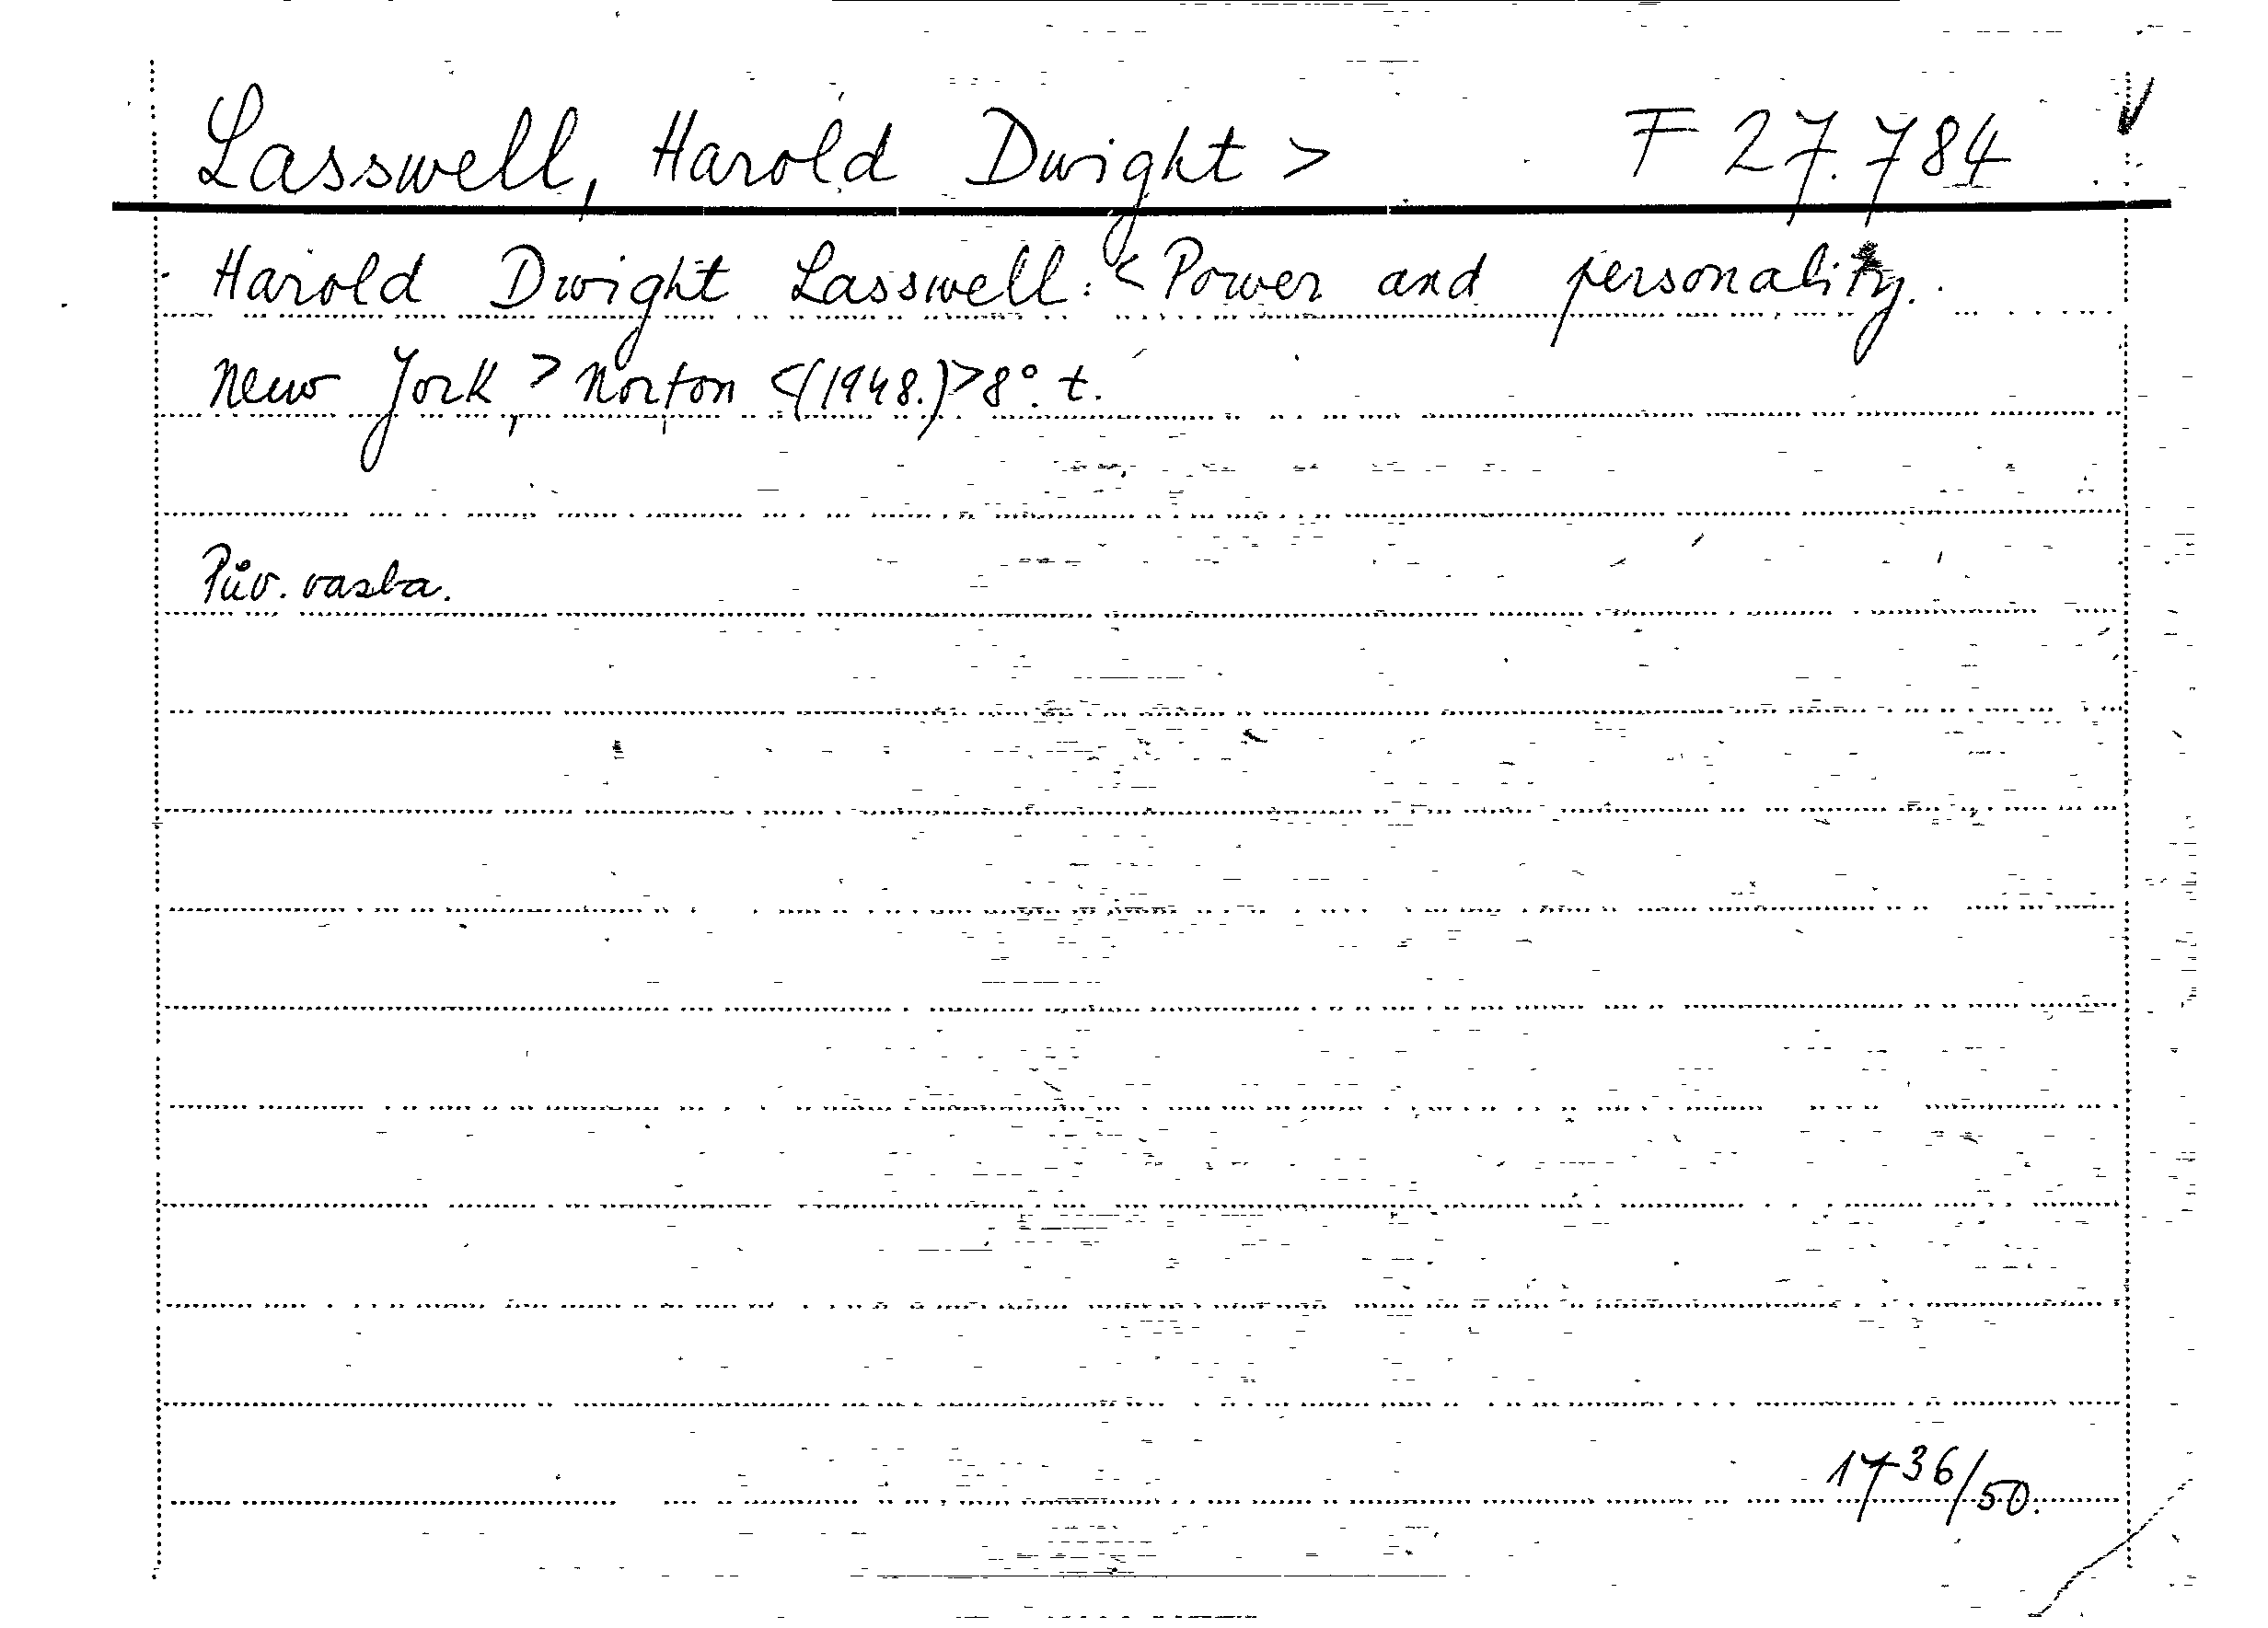 Lasswell, Harold Dwight > F 27.784
Harold Dwight Lasswell: < Power and personality.
New York, > Norton <(1948.)> 8°. t.
Pův. vazba.
1736/50.